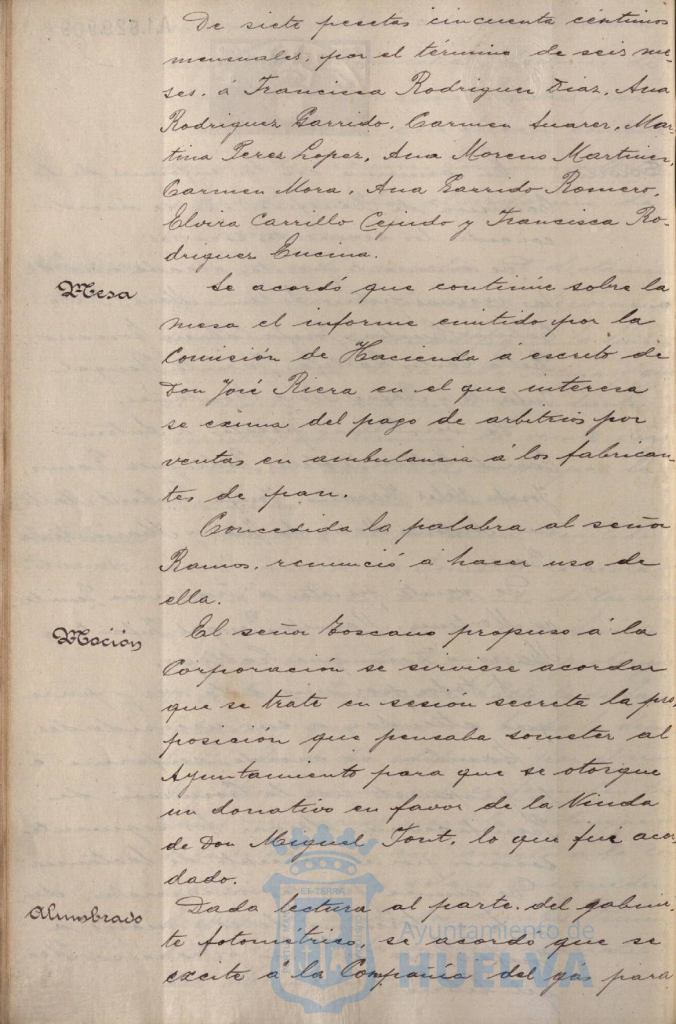 De siete pesetas cincuenta céntimos
mensuales, por el término de seis me-
ses, á Francisca Rodriguez Diaz, Ana
Rodriguez Garrido, Carmen Suarez, Mar-
tina Perez Lopez, Ana Moreno Martinez,
Carmen Mora, Ana Garrido Romero,
Elvira Carrillo Cejudo y Francisca Ro-
driguez Encina.
Mesa
Se acordó que continúe sobre la
mesa el informe emitido por la
Comisión de Hacienda á escrito de
Don José Riera en el que interesa
se exima del pago de arbitrios por
ventas en ambulancia á los fabrican-
tes de pan.
Concedida la palabra al señor
Ramos, renunció á hacer uso de
ella.
Moción
El señor Toscano propuso á la
Corporación se sirviese acordar
que se trate en sesión secreta la pro-
posición que pensaba someter al
Ayuntamiento para que se otorgue
un donativo en favor de la Viuda
de Don Miguel Font, lo que fué acor-
dado.
Alumbrado
Dada lectura al parte del gabine-
te fotométrico, se acordó que se
excite á la Compañía del gas para
Ayuntamiento de
HUELVA